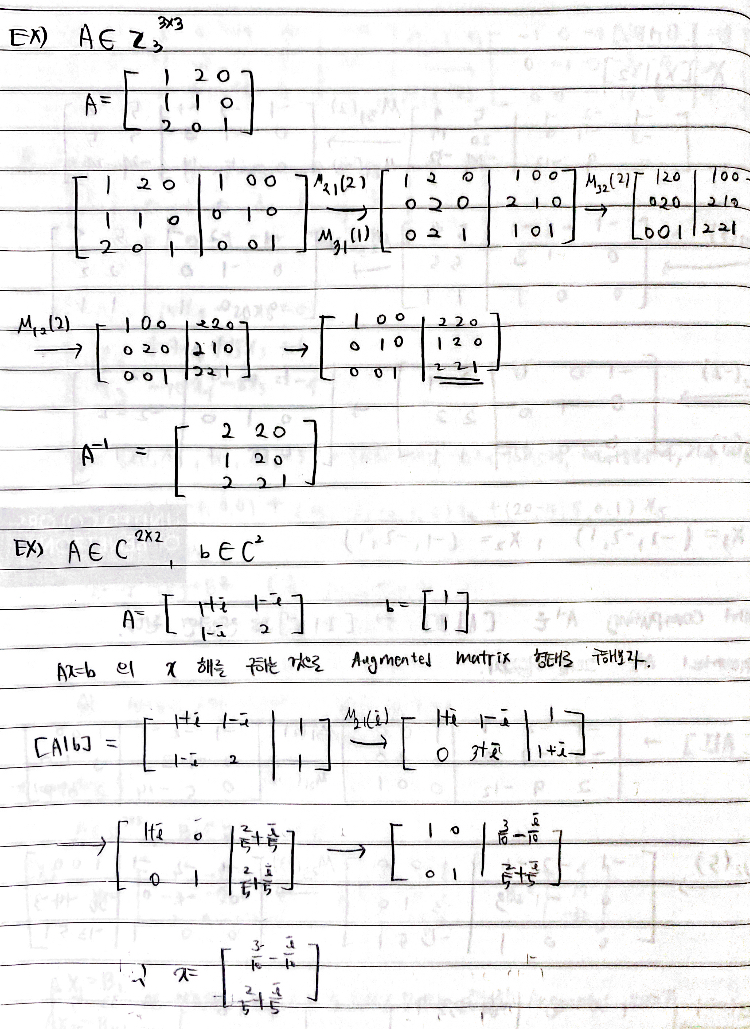 EX) A ∈ Z₃^{3×3}
A = [ 1 2 0 ; 1 1 0 ; 2 0 1 ]
[ 1 2 0 | 1 0 0 ; 1 1 0 | 0 1 0 ; 2 0 1 | 0 0 1 ] M₂₁(2) M₃₁(1) → [ 1 2 0 | 1 0 0 ; 0 2 0 | 2 1 0 ; 0 2 1 | 1 0 1 ] M₃₂(2) → [ 1 2 0 | 1 0 0 ; 0 2 0 | 2 1 0 ; 0 0 1 | 2 2 1
M₁₂(2) → [ 1 0 0 | 2 2 0 ; 0 2 0 | 2 1 0 ; 0 0 1 | 2 2 1 ] → [ 1 0 0 | 2 2 0 ; 0 1 0 | 1 2 0 ; 0 0 1 | 2 2 1 ]
A⁻¹ = [ 2 2 0 ; 1 2 0 ; 2 2 1 ]
EX) A ∈ C^{2×2}, b ∈ C²
A = [ 1+i 1-i ; 1-i 2 ] b = [ 1 ; 1 ]
Ax=b 의 x 해를 구하는 것으로 Augmented matrix 형태로 구해보자.
[A|b] = [ 1+i 1-i | 1 ; 1-i 2 | 1 ] M₂₁(i) → [ 1+i 1-i | 1 ; 0 3+i | 1+i ]
→ [ 1+i 0 | 2/5 + i/5 ; 0 1 | 2/5 + i/5 ] → [ 1 0 | 3/10 - i/10 ; 0 1 | 2/5 + i/5 ]
∴ x = [ 3/10 - i/10 ; 2/5 + i/5 ]